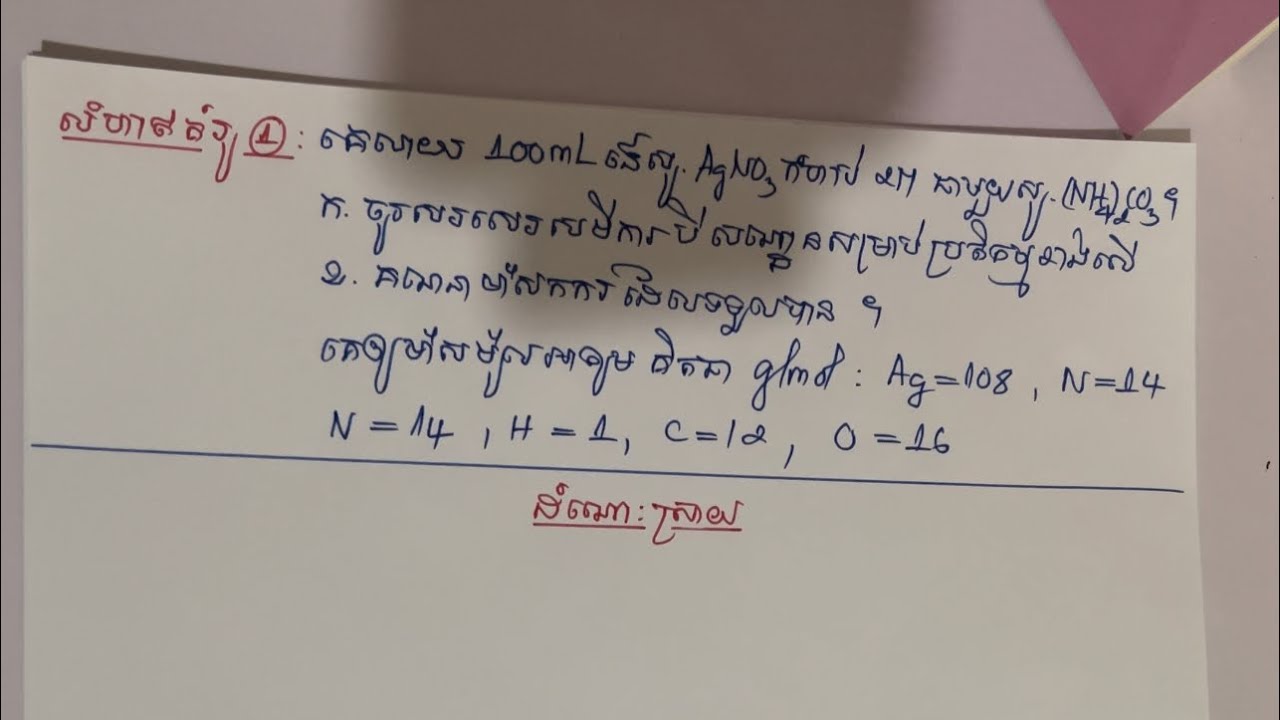 លំហាត់គំរូ ① : គេលាយ 100mL នៃសូ. AgNO₃ កំហាប់ 2M ជាមួយសូ. (NH₄)₂CO₃ ។
ក. ចូរសរសេរសមីការបីសណ្ឋានសម្រាប់ប្រតិកម្មខាងលើ
ខ. គណនាម៉ាសកករដែលទទួលបាន ។
គេឲ្យម៉ាសម៉ូលអាតូម គិតជា g/mol : Ag=108 , N=14
N = 14 , H = 1, C=12 , O = 16
ដំណោះស្រាយ